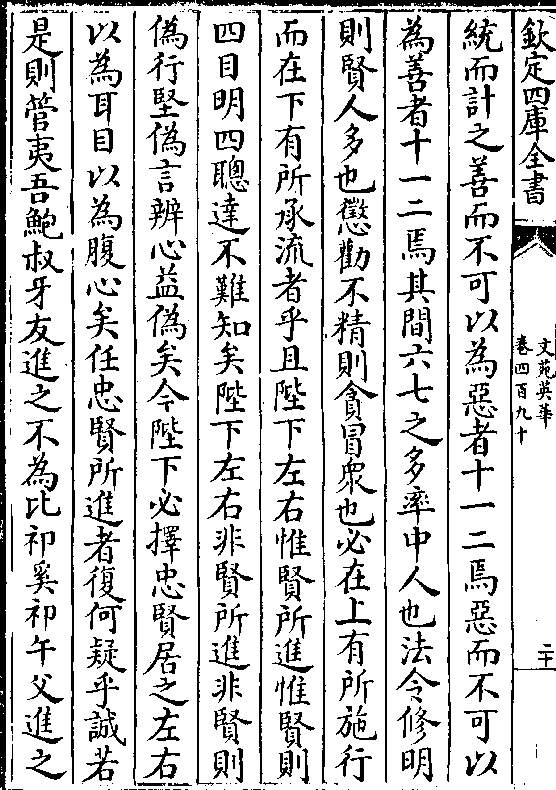 欽定四庫全書
文苑英華
卷四百九十
二十
統而計之善而不可以為惡者十一二焉惡而不可以
為善者十一二焉其間六七之多率中人也法令修明
則賢人多也懲勸不精則貪冒衆也必在上有所施行
而在下有所承流者乎且陛下左右惟賢所進惟賢則
四目明四聰達不難知矣陛下左右非賢所進非賢則
偽行堅偽言辨心益偽矣今陛下必擇忠賢居之左右
以為耳目以為腹心矣任忠賢所進者復何疑乎誠若
是則管夷吾鮑叔牙友進之不為比祁奚祁午父進之